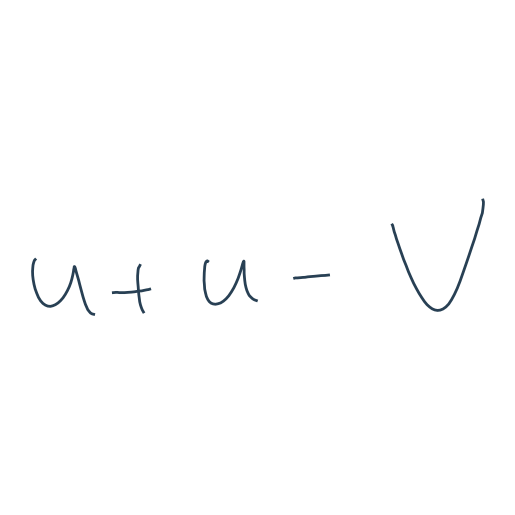 u + u - V